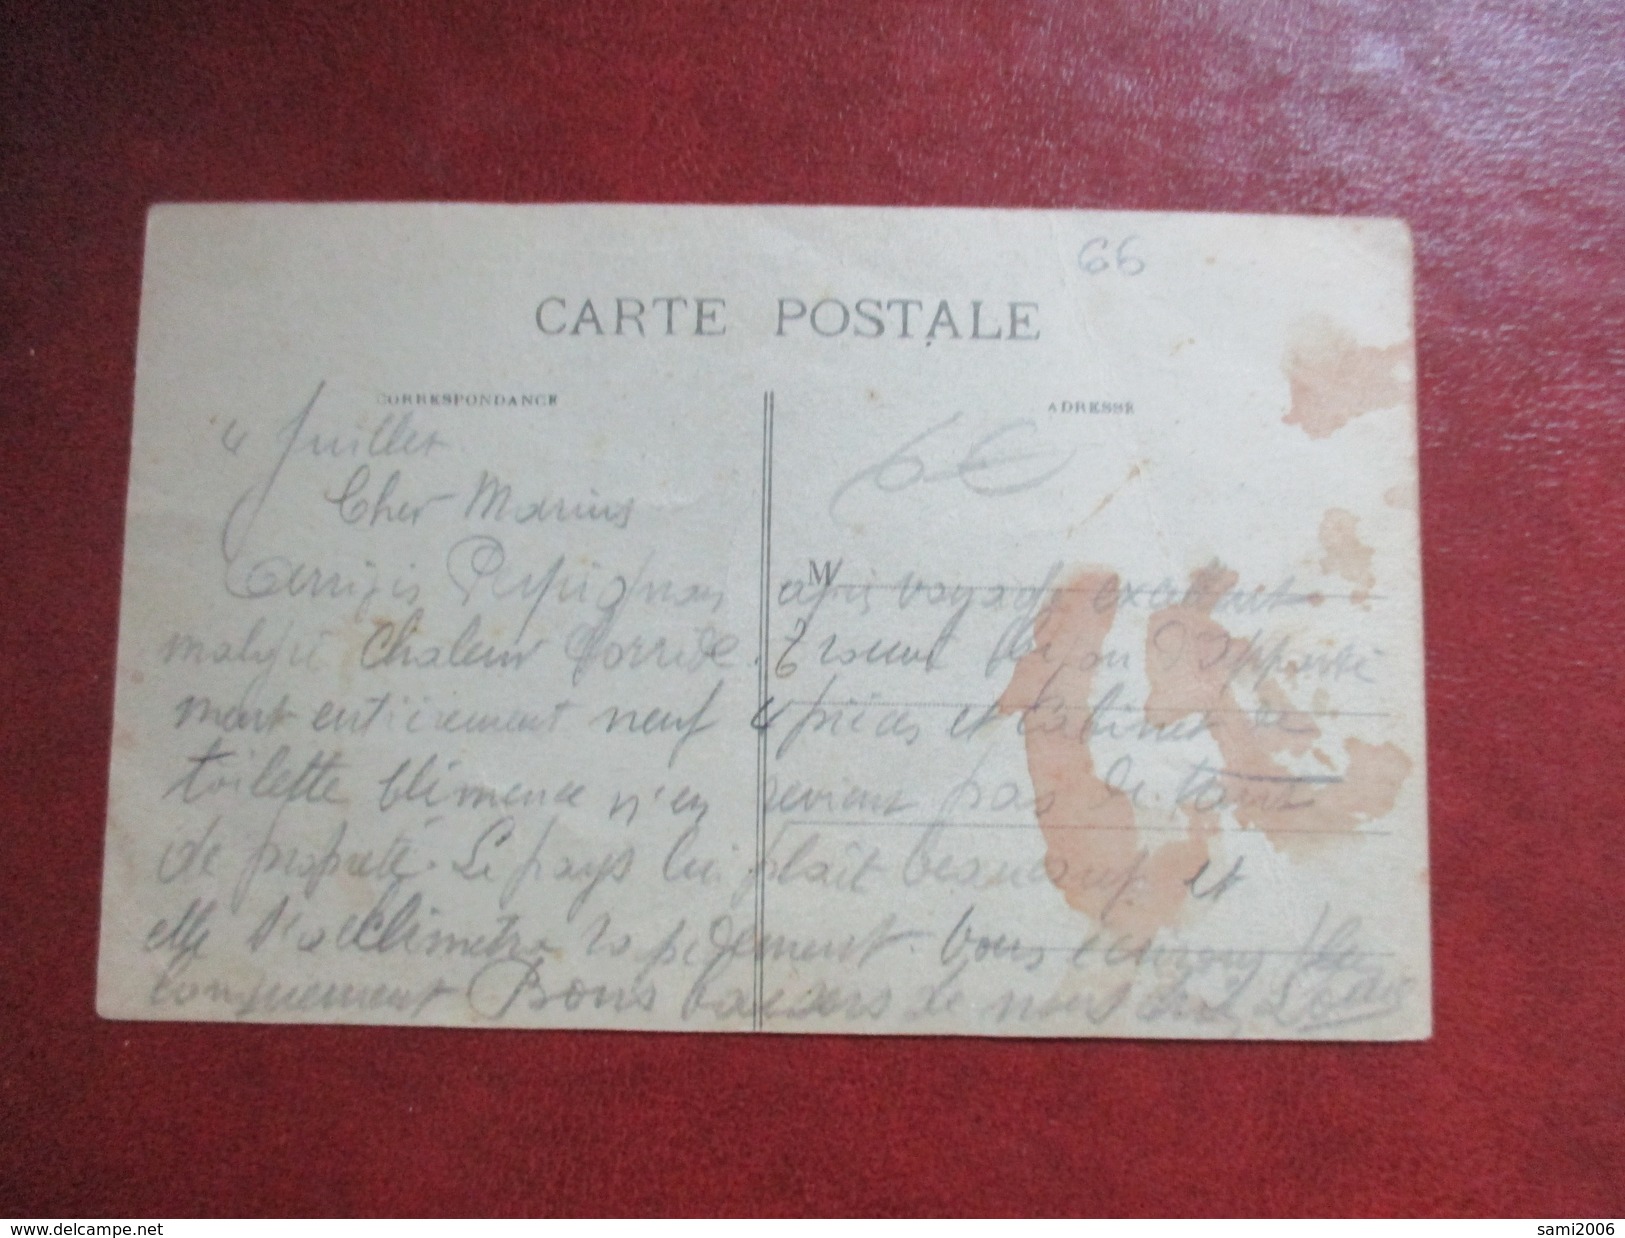 66
CARTE POSTALE
CORRESPONDANCE
ADRESSE
4 Juillet
6€
Cher Marius
M
Perpignan après voyage excellent
malgré chaleur torride. Trouvé appartement
ment entièrement neuf 4 pièces et cabinet de
toilette Clémence n'en revient pas de tant
de propreté. Le pays lui plaît beaucoup et
elle s'acclimatera rapidement. Vous écrirons plus
longuement Bons baisers de nous deux
delcampe.net
sami2006